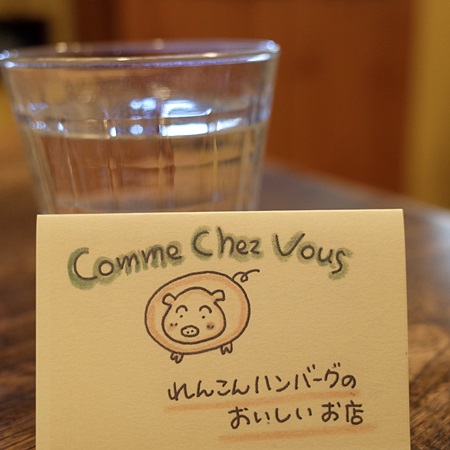 Comme Chez Vous
れんこんハンバーグの
おいしいお店